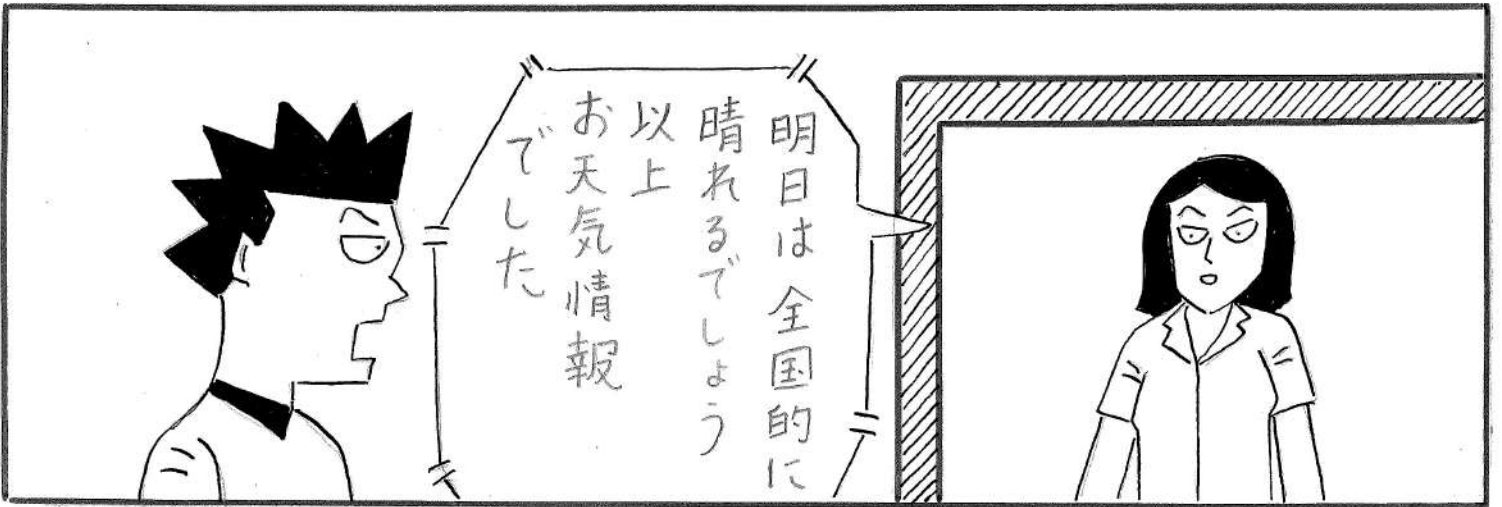 明日は全国的に
晴れるでしょう
以上
お天気情報
でした